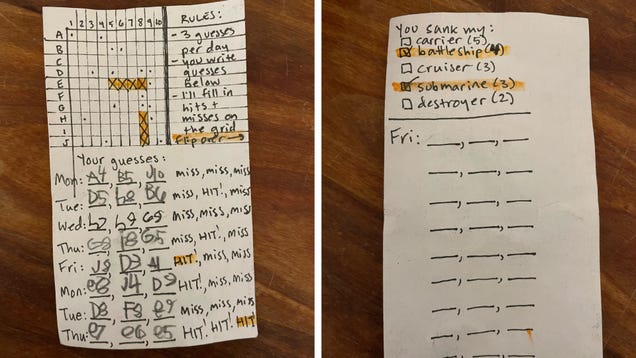 1 2 3 4 5 6 7 8 9 10
A
B
C
D
E
F
G
H
I
J
RULES:
- 3 guesses
per day
- you write
guesses
below
- I'll fill in
hits +
misses on
the grid
Flip over →
Your guesses:
Mon: A4, B5, J10 miss, miss, miss
Tue: D5, B6 miss, HIT!, miss
Wed: G9 miss, miss, miss
Thu: G8, I8, G5 miss, HIT!, miss
Fri: J8, D3 HIT!, miss, miss
Mon: e8, J4, D9 HIT!, miss, miss
Tue: D8, F8, e9 miss, miss, miss
Thu: e7, e6, e5 HIT! HIT! HIT!
You sank my:
carrier (5)
battleship (4)
cruiser (3)
submarine (3)
destroyer (2)
Fri: